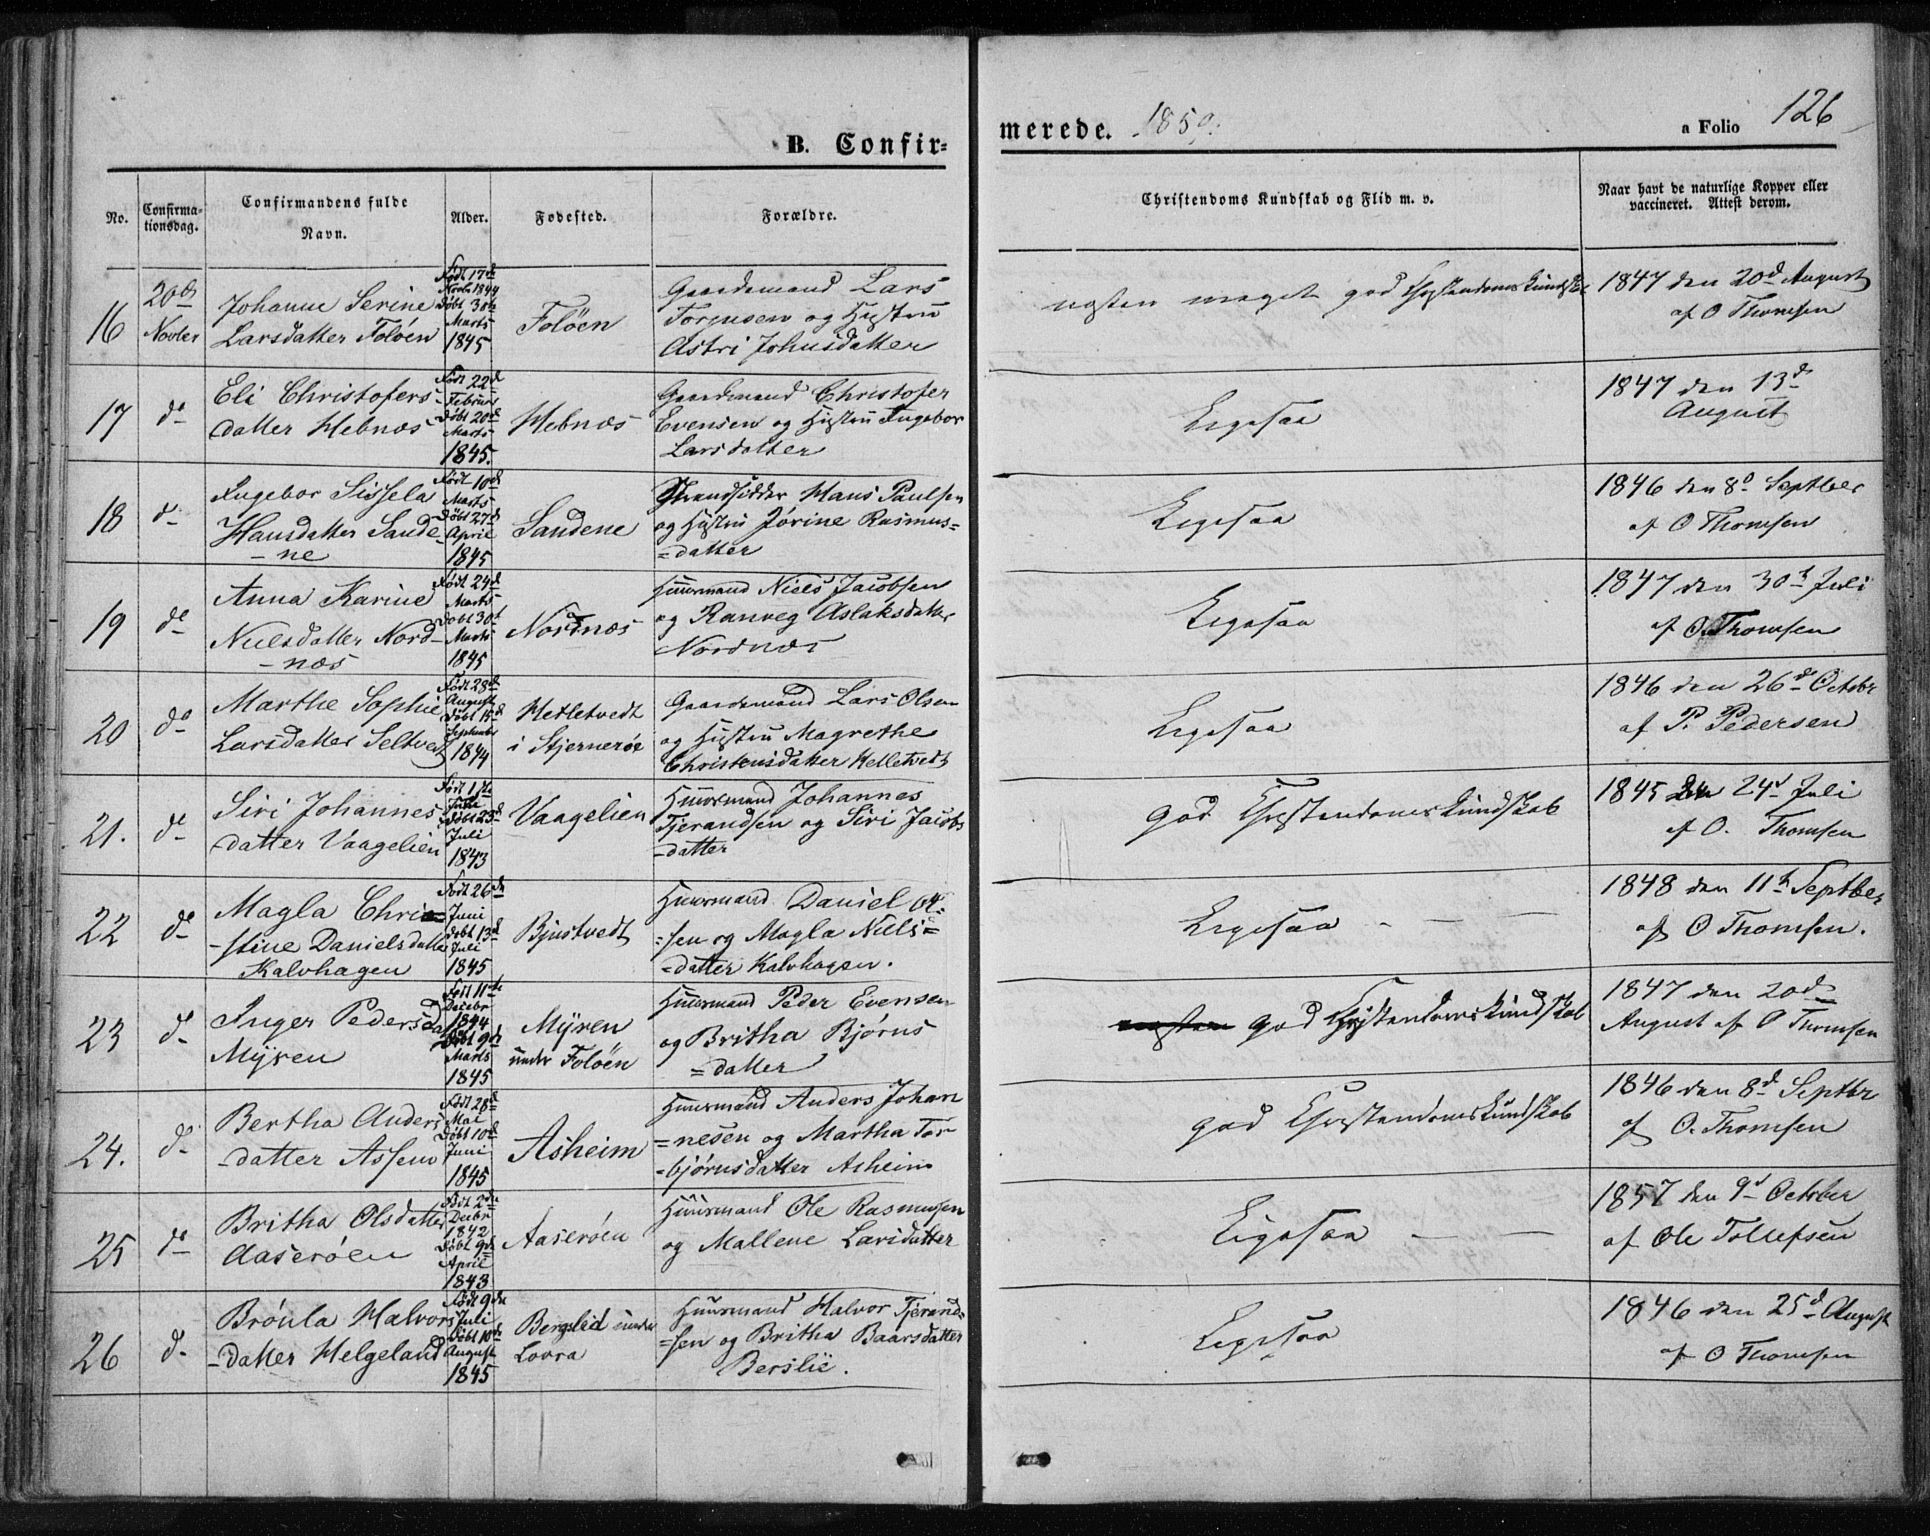 B. Confir-
merede. 1859.
a Folio 126
No.
Confirma-
tionsdag.
Confirmandens fulde
Navn.
Alder.
Fødested.
Forældre.
Christendoms Kundskab og Flid m. v.
Naar havt de naturlige Kopper eller
vaccineret. Attest derom.
16
20de
Novber
Johanne Serine
Larsdatter Foløen
Født 17de
Novbr 1844
Døbt 30te
Marts
1845
Foløen
Gaardmand Lars
og Hustru
Astri Johnsdatter
næsten meget god Christendomskundskab
1847 den 20de August
af O Thomsen
17
do
Eli Christofers
datter Hebnæs
Født 22de
Februar
Døbt 20de
Marts
1845.
Hebnæs
Gaardmand Christofer
Evensen og Hustru Ingebor
Larsdatter
Ligesaa
1847 den 13de
August
18
do
Ingebor Sissela
Hansdatter Sande
-ne
Født 10de
Marts
Døbt 27de
April
1845
Sandene
Strandsidder Hans Paulsen
og Hustru Jórine Rasmus=
=datter
Ligesaa
1846 den 8de Septber
af O Thomsen
19
do
Anna Karine
Nielsdatter Nord-
-næs
Født 24de
Marts
Døbt 30te
Marts
1845
Nordnæs
Huusmand Niels Jacobsen
og Ranveg Aslaksdatter
Nordnæs
Ligesaa
1847 den 30te Juli
af O. Thomsen
20
do
Marthe Sophie
Larsdatter Seltvedt
Født 28de
August
Døbt 15de
September
1844
Hetletvedt
i Stjernerøe
Gaardmand Lars Olsen
og Hustru Magrethe
Christensdatter Helletvedt
Ligesaa
1846 den 26de Octobr
af P. Pedersen
21.
do
Siri Johannes
datter Vaagelien
Født 1ste
Døbt 23de
Juli
1843
Vaagelien
Huusmand Johannes
Tjerandsen og Siri Jacobs
-datter
god Christendomskundskab
1845 den 24de Juli
af O. Thomsen
22
do
Magla Chri=
-stine Danielsdatter
Kalvhagen
Født 26de
Juni
Døbt 13de
Juli
1845
Bjustvedt
Huusmand Daniel Ol=
=sen og Magla Niels=
=datter Kalvhagen.
Ligesaa - - -
1848 den 11te Septber
af O Thomsen.
23
do
Inger Pedersdatter
Myren
Født 11te
Decebr
1844
Døbt 9de
Marts
1845
Myren
under Foløen
Huusmand Peder Evensen
og Britha Bjørns
=datter
næsten god Christendomskundskab
1847 den 20de
August af O Thomsen
24.
do
Bertha Anders
-datter Assem
Født 28de
Mai
Døbt 10de
Juni
1845
Asheim
Huusmand Anders Johan
=nesen og Martha Tor
=bjørnsdatter Asheim
god Christendomskundskab
1846 den 8de Septbr
af O. Thomsen
25
do
Britha Olsdatter
Aaserøen
Født 2den
Decbr
1842
Døbt 9de
April
1843
Aaserøen
Huusmand Ole Rasmussen
og Mallene Larsdatter
Ligesaa - -
1857 den 9de October
af Ole Tollefsen
26
do
Bróula Halvors
-datter Helgeland
Født 9de
Juli
Døbt 10de
August
1845
Bergslid under
Lovra
Huusmand Halvor Tjerand=
=sen og Britha Baarsdatter
Berslie.
Ligesaa
1846 den 25de August
af O Thomsen